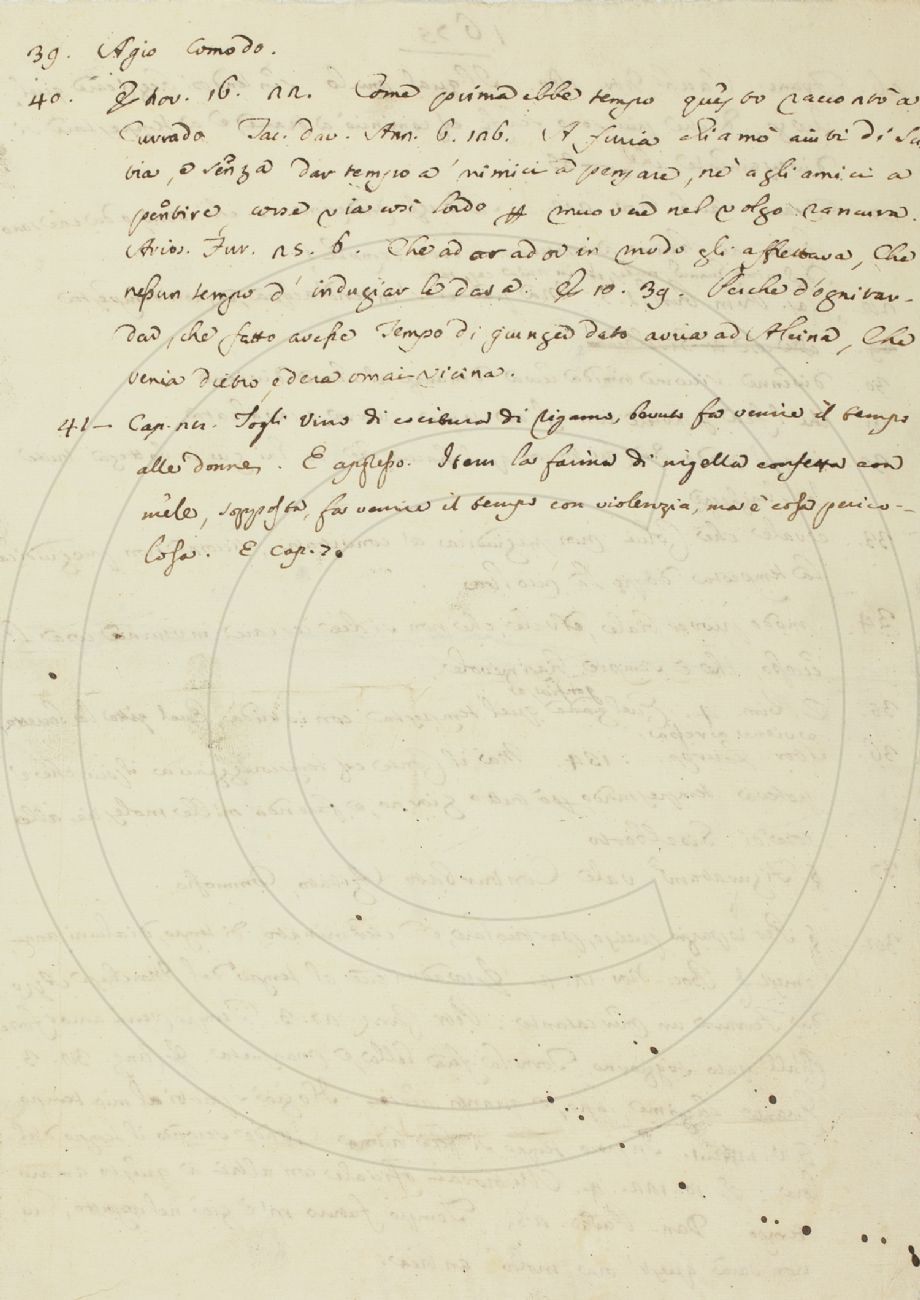 39. Agio comodo.
40. E nov. 16. 22. Come prima ebbe tempo questo raccontò a
Currado Tac. Dav. Ann. 6. 126. A furia chiamò aiuti di So
ria, e senza dar tempo a' nimici a pensare, nè agli amici a
pentire corse via così lordo muovere nel volgo rancura.
Arios. Fur. 25. 6. Che ad or ad or in modo gli affrettava, Che
nessun tempo d' indugiar le dava. E 10. 39. Perche d'ogni tar-
dar, che fatto avesse Tempo di giunger dato avria ad Alcina, Che
venia dietro, ed era omai vicina.
41 – Cap. Togli vino di cocitura di rigamo, bevuto fa venire il tempo
alle donne. E appresso. Item la farina di nigella confetta con
mele, sopposta, fa venire il tempo con violenzia, ma è cosa perico-
losa. E cap. 7.